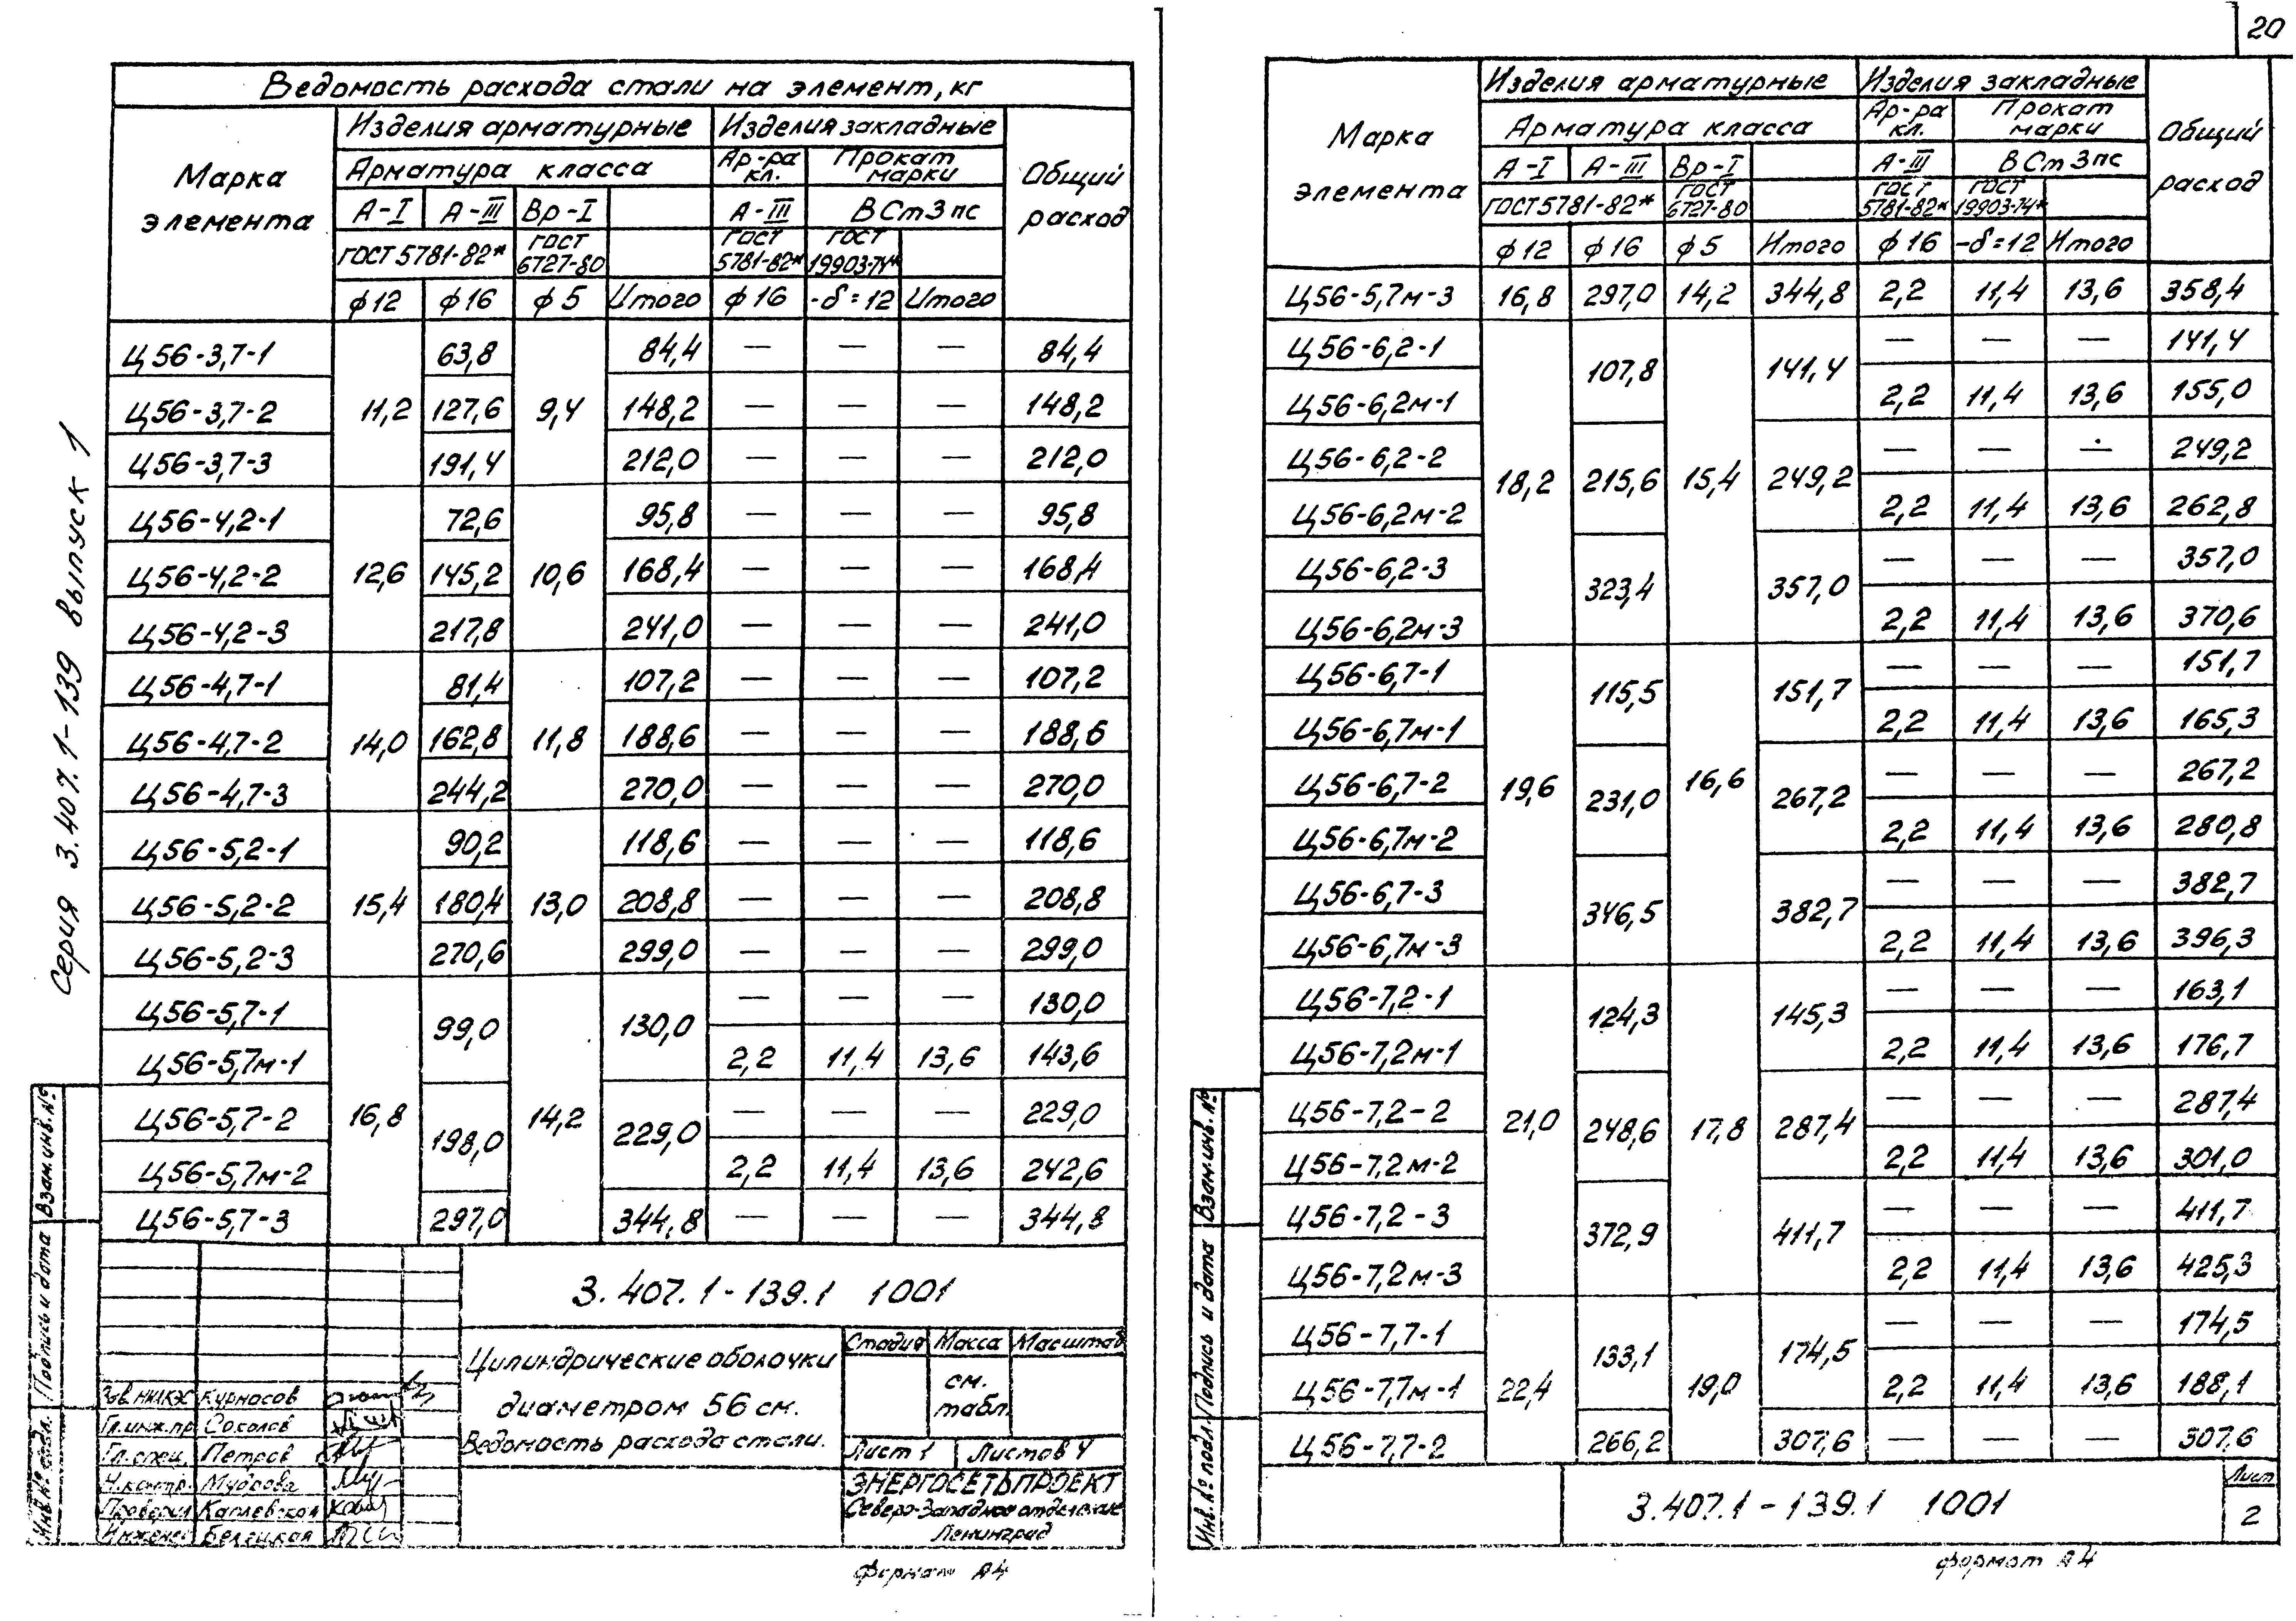 20
Серия 3.407.1-139 выпуск 1
Ведомость расхода стали на элемент, кг
Марка элемента
Изделия арматурные
Изделия закладные
Общий расход
Арматура класса
Ар-ра кл.
Прокат марки
А-I А-III Вр-I
А-III
ВСт3пс
ГОСТ 5781-82*
ГОСТ 6727-80
ГОСТ 5781-82*
ГОСТ 19903-74*
ф12 ф16 ф5 Итого ф16 -δ=12 Итого
Ц56-3,7-1 63,8 84,4 — — — 84,4
Ц56-3,7-2 11,2 127,6 9,4 148,2 — — — 148,2
Ц56-3,7-3 191,4 212,0 — — — 212,0
Ц56-4,2-1 72,6 95,8 — — — 95,8
Ц56-4,2-2 12,6 145,2 10,6 168,4 — — — 168,4
Ц56-4,2-3 217,8 241,0 — — — 241,0
Ц56-4,7-1 81,4 107,2 — — — 107,2
Ц56-4,7-2 14,0 162,8 11,8 188,6 — — — 188,6
Ц56-4,7-3 244,2 270,0 — — — 270,0
Ц56-5,2-1 90,2 118,6 — — — 118,6
Ц56-5,2-2 15,4 180,4 13,0 208,8 — — — 208,8
Ц56-5,2-3 270,6 299,0 — — — 299,0
Ц56-5,7-1 99,0 130,0 — — — 130,0
Ц56-5,7м-1 2,2 11,4 13,6 143,6
Ц56-5,7-2 16,8 198,0 14,2 229,0 — — — 229,0
Ц56-5,7м-2 2,2 11,4 13,6 242,6
Ц56-5,7-3 297,0 344,8 — — — 344,8
3.407.1-139.1 1001
Цилиндрические оболочки
диаметром 56 см.
Ведомость расхода стали.
Стадия Масса Масштаб
см. табл.
Лист 1 Листов 4
ЭНЕРГОСЕТЬПРОЕКТ
Северо-Западное отделение
Ленинград
Зав.НИЛКЭС Курносов
Гл.инж.пр. Соколов
Гл.спец. Петров
Н.контр. Мудрова
Проверил Каплевская
Инженер Белецкая
Инв.№ подл. Подпись и дата Взам.инв.№
Формат А4
Марка элемента
Изделия арматурные
Изделия закладные
Общий расход
Арматура класса
Ар-ра кл.
Прокат марки
А-I А-III Вр-I
А-III
ВСт3пс
ГОСТ 5781-82*
ГОСТ 6727-80
ГОСТ 5781-82*
ГОСТ 19903-74*
ф12 ф16 ф5 Итого ф16 -δ=12 Итого
Ц56-5,7м-3 16,8 297,0 14,2 344,8 2,2 11,4 13,6 358,4
Ц56-6,2-1 107,8 141,4 — — — 141,4
Ц56-6,2м-1 2,2 11,4 13,6 155,0
Ц56-6,2-2 18,2 215,6 15,4 249,2 — — — 249,2
Ц56-6,2м-2 2,2 11,4 13,6 262,8
Ц56-6,2-3 323,4 357,0 — — — 357,0
Ц56-6,2м-3 2,2 11,4 13,6 370,6
Ц56-6,7-1 115,5 151,7 — — — 151,7
Ц56-6,7м-1 2,2 11,4 13,6 165,3
Ц56-6,7-2 19,6 231,0 16,6 267,2 — — — 267,2
Ц56-6,7м-2 2,2 11,4 13,6 280,8
Ц56-6,7-3 346,5 382,7 — — — 382,7
Ц56-6,7м-3 2,2 11,4 13,6 396,3
Ц56-7,2-1 124,3 145,3 — — — 163,1
Ц56-7,2м-1 2,2 11,4 13,6 176,7
Ц56-7,2-2 21,0 248,6 17,8 287,4 — — — 287,4
Ц56-7,2м-2 2,2 11,4 13,6 301,0
Ц56-7,2-3 372,9 411,7 — — — 411,7
Ц56-7,2м-3 2,2 11,4 13,6 425,3
Ц56-7,7-1 133,1 174,5 — — — 174,5
Ц56-7,7м-1 22,4 19,0 2,2 11,4 13,6 188,1
Ц56-7,7-2 266,2 307,6 — — — 307,6
3.407.1-139.1 1001
Лист
2
Инв.№ подл. Подпись и дата Взам.инв.№
Формат А4